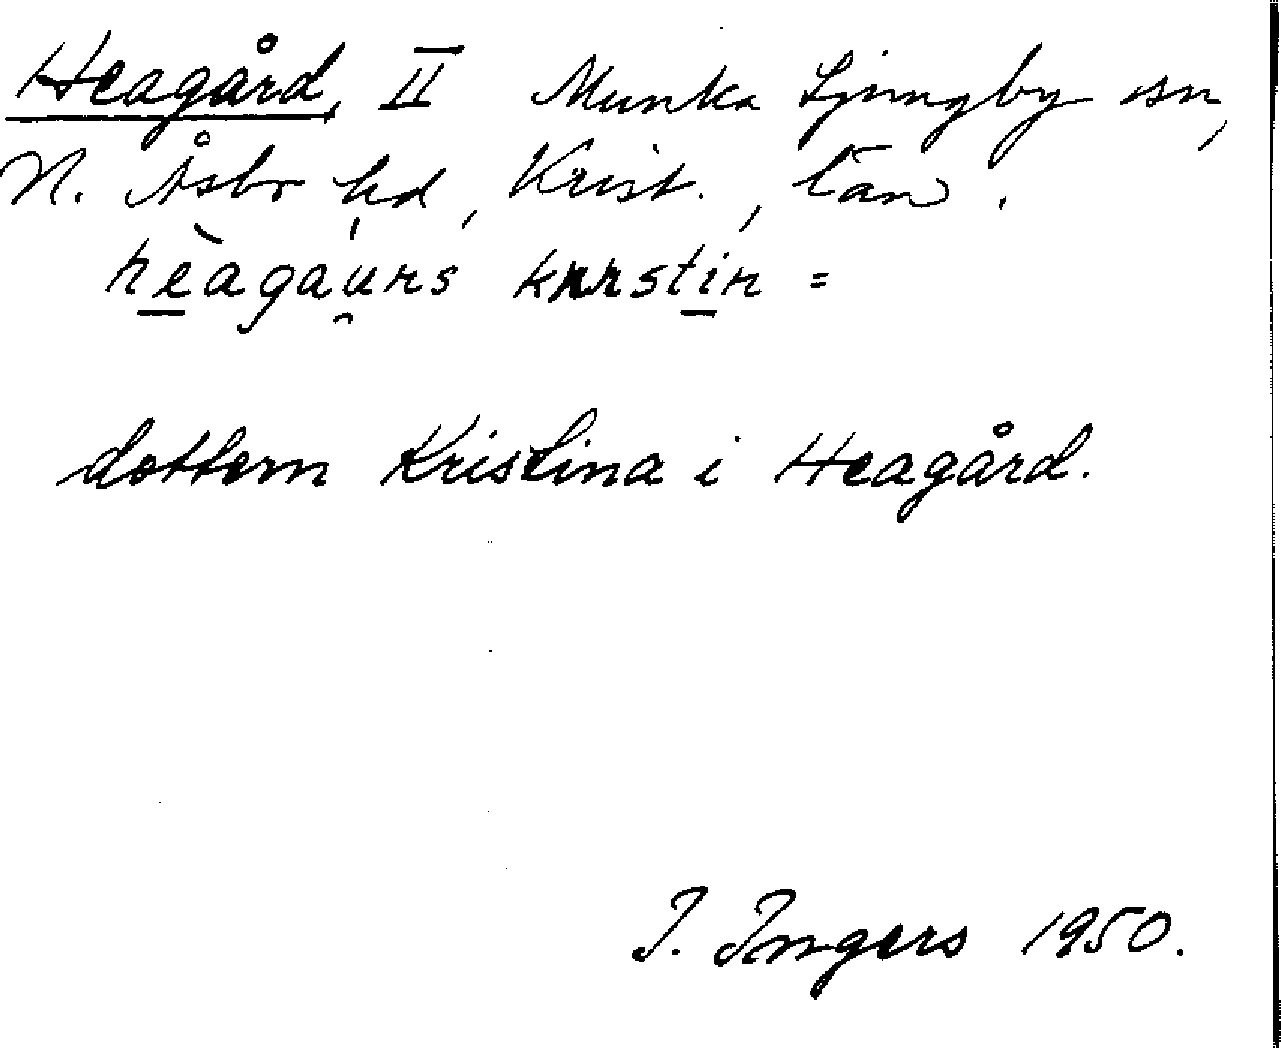 Heagård, II Munka Ljungby sn,
N. Åsbo hd, Krist., län.
hèagáu̯rs kʀʀstin =
dottern Kristina i Heagård.
I. Ingers 1950.